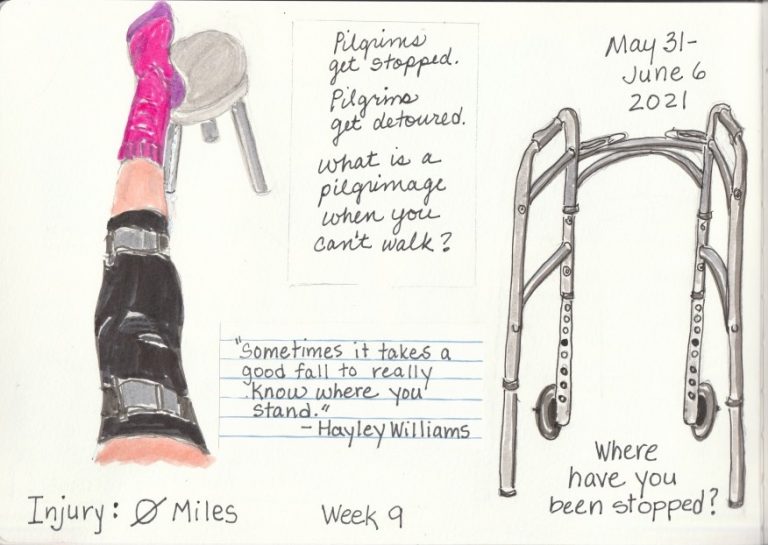 Pilgrims
get stopped.
Pilgrims
get detoured.
What is a
pilgrimage
when you
can't walk?
May 31-
June 6
2021
"Sometimes it takes a
good fall to really
know where you
stand."
- Hayley Williams
Where
have you
been stopped?
Injury: Ø Miles
Week 9